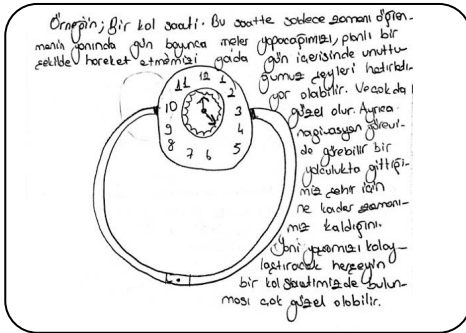 Örneğin; Bir kol saati. Bu saatte sadece zamanı öğren-
menin yanında gün boyunca neler yapacağımızı, planlı bir
şekilde hareket etmemizi yada gün içerisinde unuttu-
ğumuz şeyleri hatırlatı-
yor olabilir. Ve çok da
güzel olur. Ayrıca
nagivasyon görevi-
de görebilir bir
yolculukta gittiği-
miz şehir için
ne kadar zamanı-
mız kaldığını.
Yani yaşamızı kolay-
laştıracak herşeyin
bir kol saatimizde bulun-
ması çok güzel olabilir.
11 12 1
2
10 3
9 4
8 7 6 5